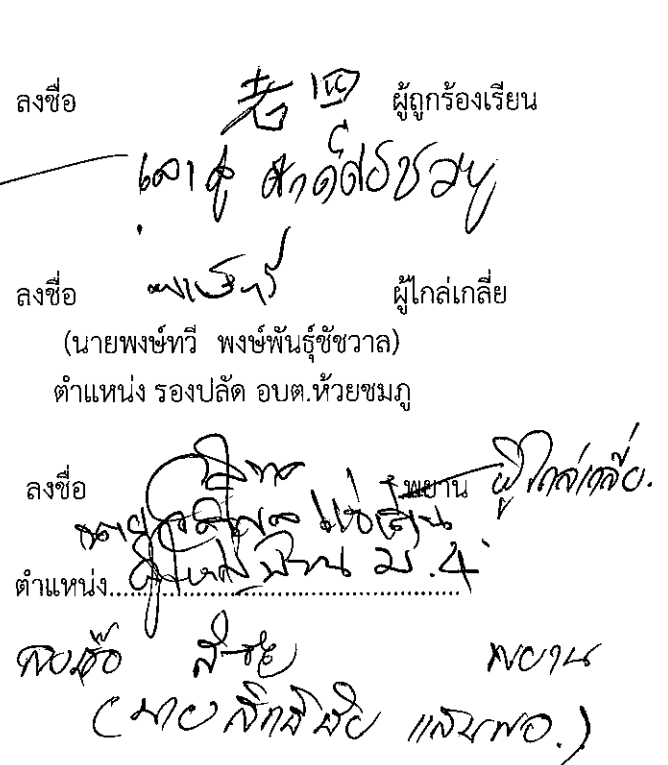 ลงชื่อ 老四 ผู้ถูกร้องเรียน
ลงชื่อ ผู้ไกล่เกลี่ย
(นายพงษ์ทวี พงษ์พันธุ์ชัชวาล)
ตำแหน่ง รองปลัด อบต.ห้วยชมภู
ลงชื่อ พยาน ผู้ไกล่เกลี่ย.
ตำแหน่ง ผู้ใหญ่บ้าน ม.4
ลงชื่อ พยาน
(นาย สิทธิชัย แสนพอ.)